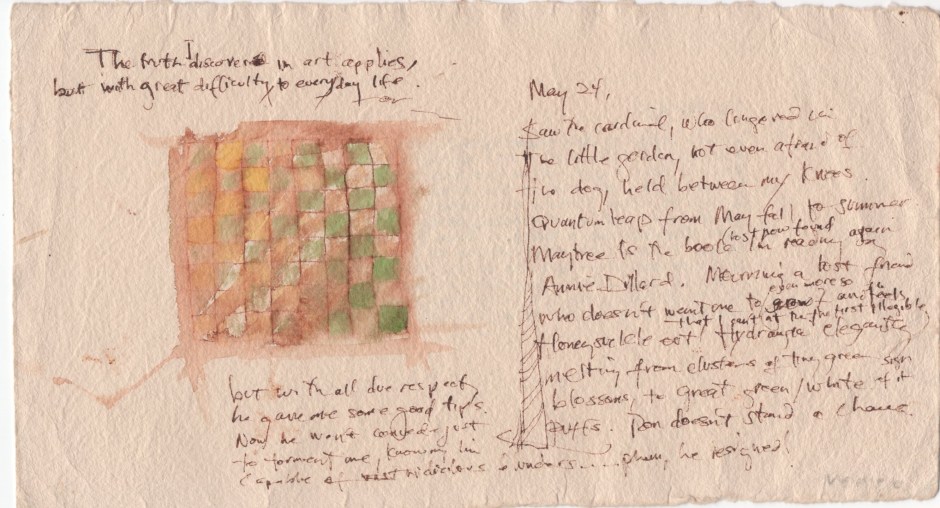 The truth I discover in art applies,
but with great difficulty, to everyday life.
May 24,
Saw the cardinal, who lingered in
the little garden, not even afraid of
the dog, held between my knees.
Quantum leap from May fall to summer
lost now found
Maytree is the book I'm reading again by
Annie Dillard. Mourning a lost friend
even more so
who doesn't want me to
that I can't at the first
Honeysuckle out Hydrangea elegantly
melting from clusters of tiny green
blossoms, to great green/white
puffs. Don doesn't stand a chance.
but with all due respect,
he gave me some good tips.
Now he won't concede just
to torment me, knowing I'm
capable of ridiculous blunders..... phew, he resigned!